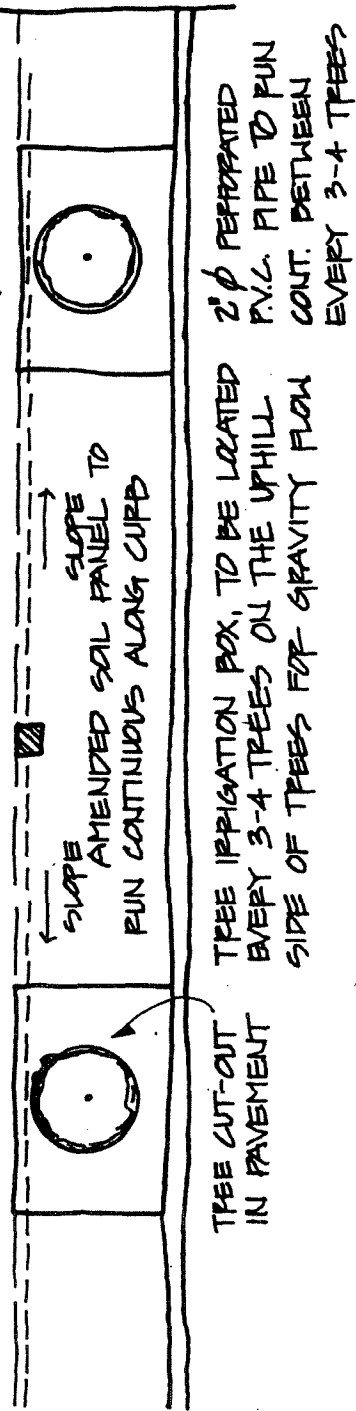 SLOPE
SLOPE
AMENDED SOIL PANEL TO
RUN CONTINUOUS ALONG CURB
TREE CUT-OUT
IN PAVEMENT
TREE IRRIGATION BOX, TO BE LOCATED
EVERY 3-4 TREES ON THE UPHILL
SIDE OF TREES FOR GRAVITY FLOW
2" φ PERFORATED
P.V.C. PIPE TO RUN
CONT. BETWEEN
EVERY 3-4 TREES